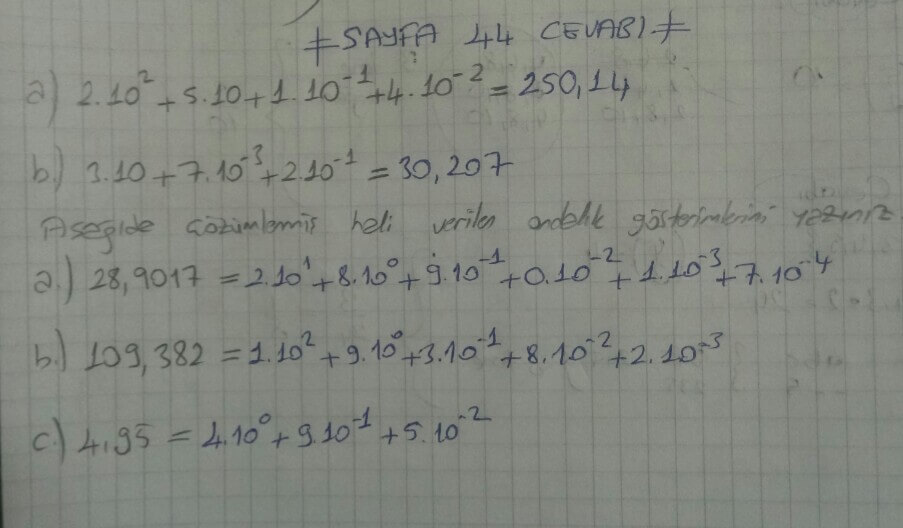 ≠SAYFA 44 CEVABI≠
a) 2.10² + 5.10 + 1.10⁻¹ + 4.10⁻² = 250,14
b.) 3.10 + 7.10⁻³ + 2.10⁻¹ = 30,207
Aşağıde çözümlenmiş heli verilen ondelik gösterimlerini yazınız
a.) 28,9017 = 2.10¹ + 8.10⁰ + 9.10⁻¹ + 0.10⁻² + 1.10⁻³ + 7.10⁻⁴
b.) 109,382 = 1.10² + 9.10⁰ + 3.10⁻¹ + 8.10⁻² + 2.10⁻³
c.) 4,95 = 4.10⁰ + 9.10⁻¹ + 5.10⁻²